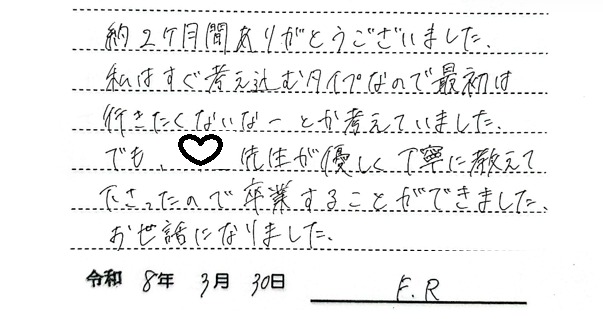 約2ケ月間ありがとうございました、
私はすぐ考え込むタイプなので最初は
行きたくないなーとか考えていました、
でも、♡先生が優しく丁寧に教えて
下さったので卒業することができました、
お世話になりました、
令和 8年 3月 30日 F.R